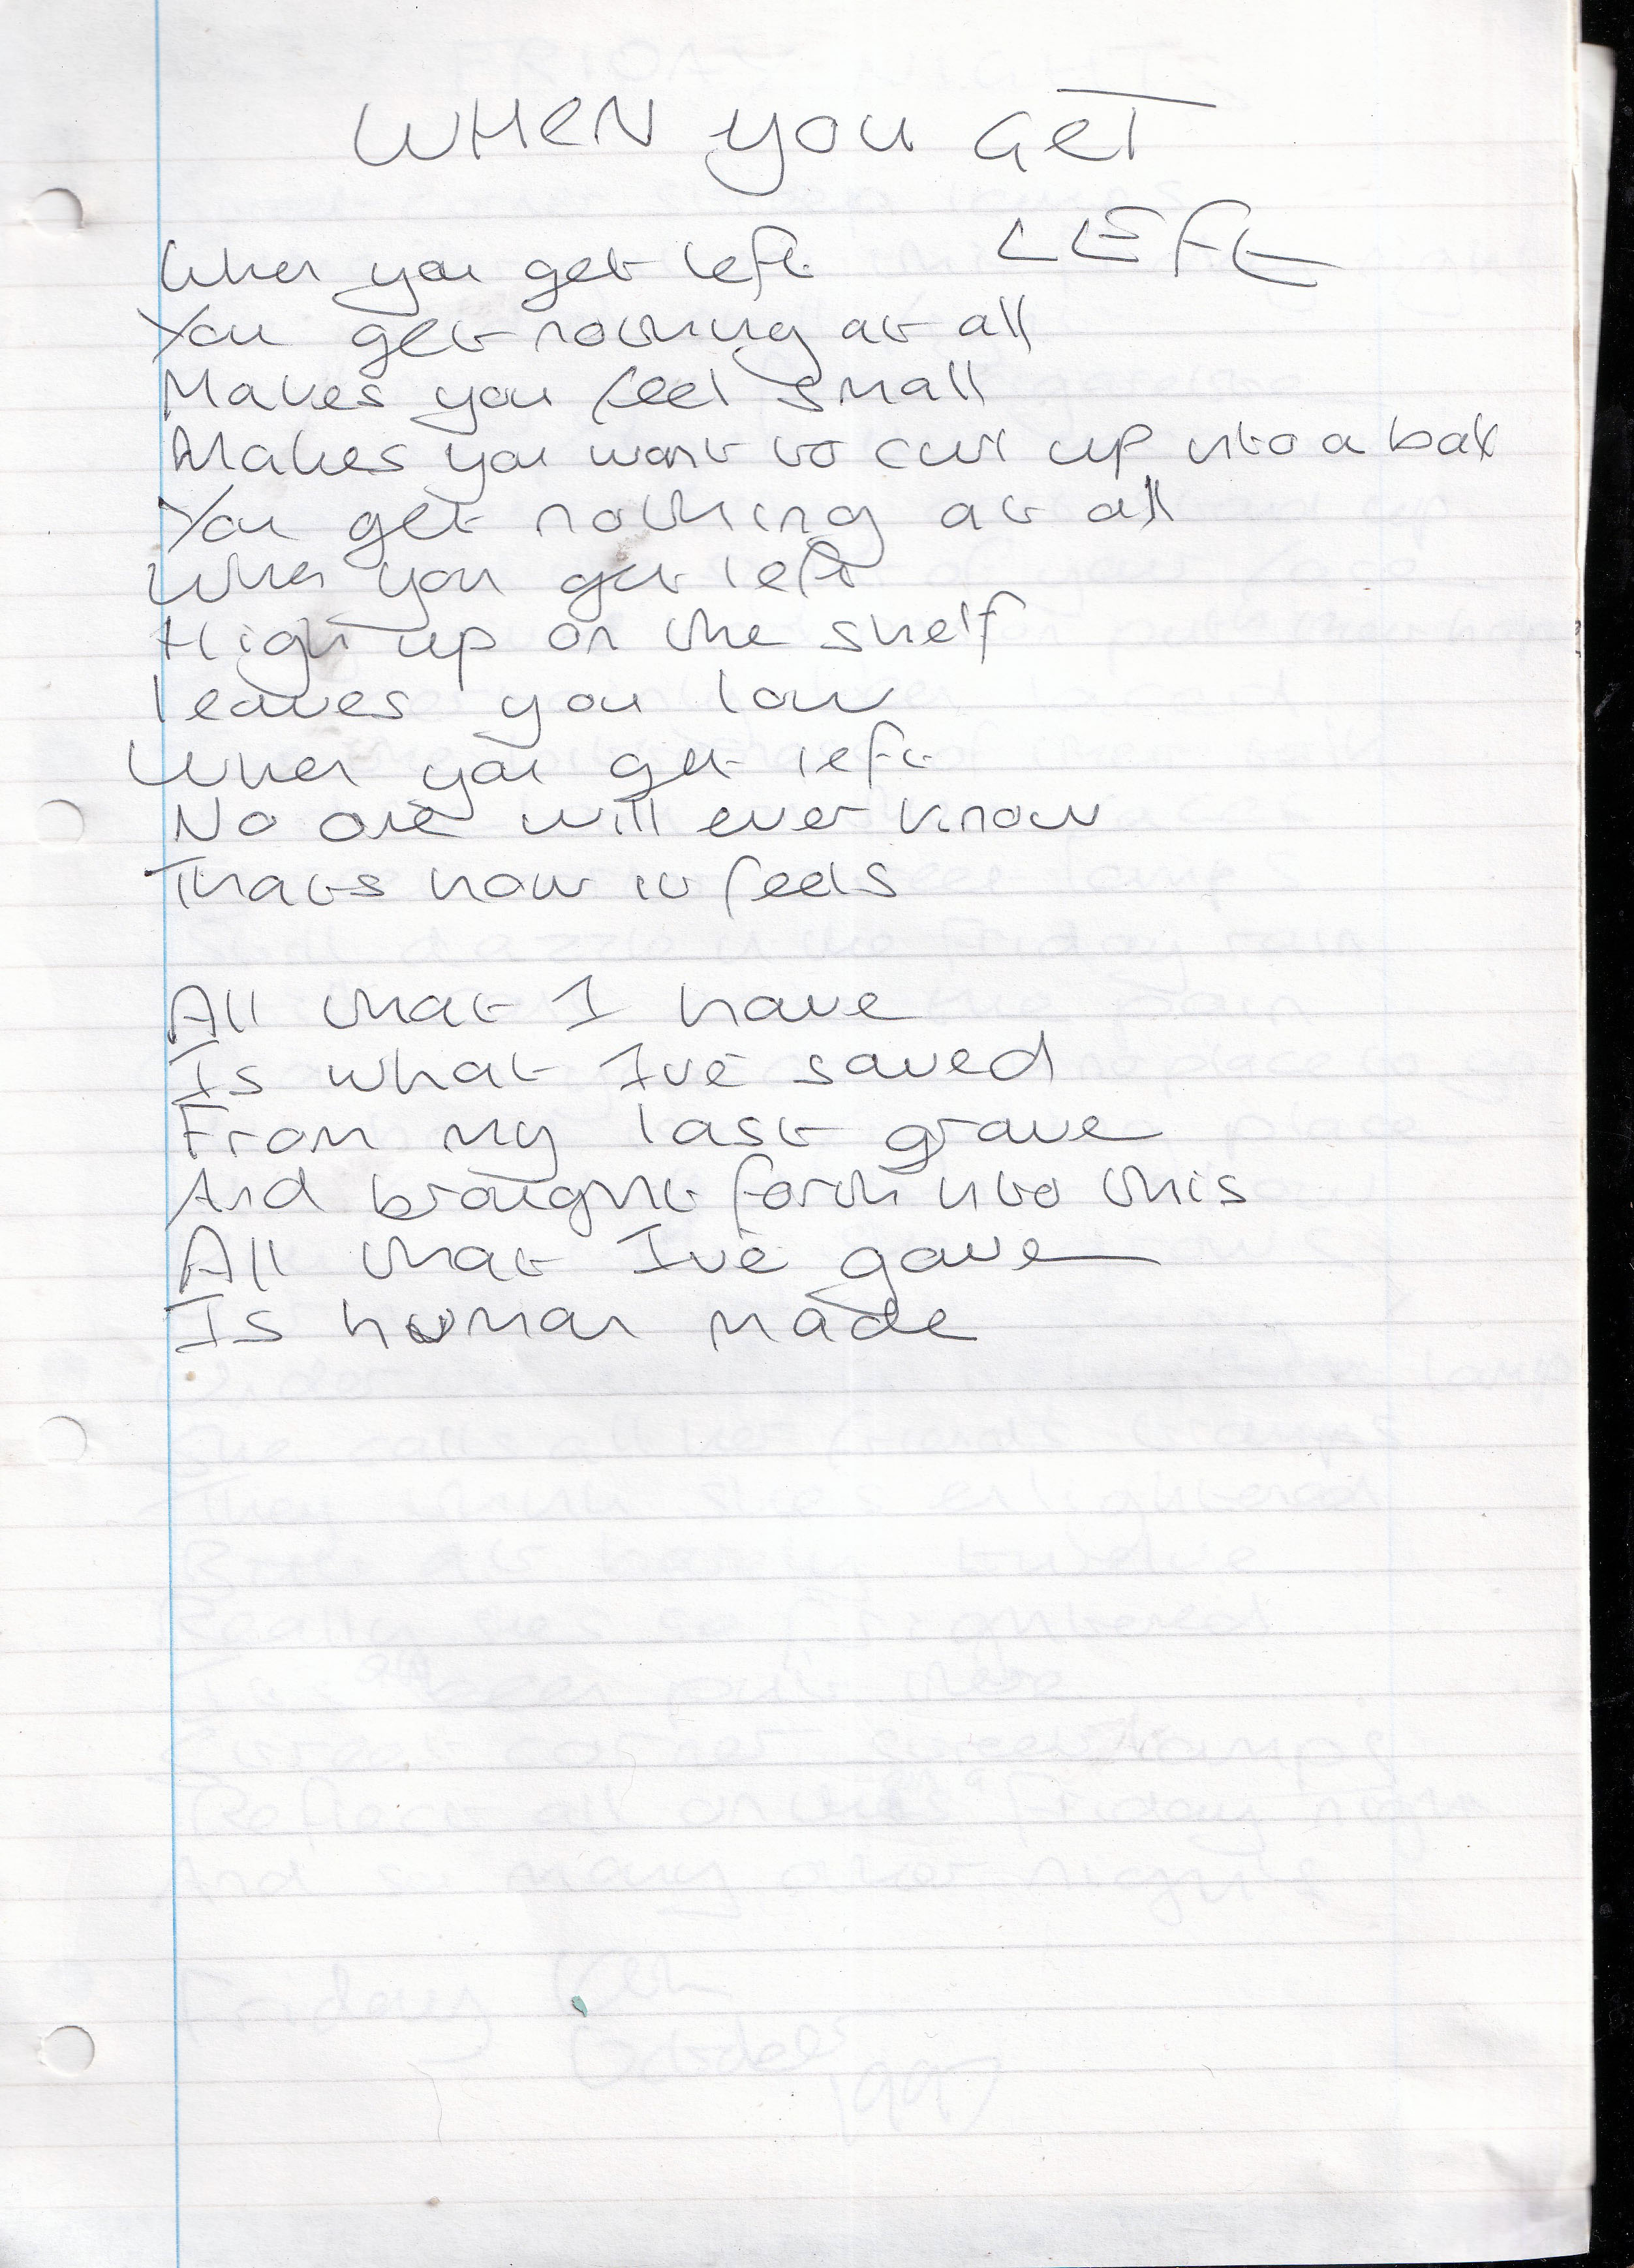 WHEN YOU GET
LEFT
When you get left
You get nothing at all
Makes you feel small
Makes you want to curl up into a ball
You get nothing at all
When you get left
High up on the shelf
leaves you low
When you get left
No one will ever know
Thats how it feels
All that I have
Is what I've saved
From my last grave
And braught forth into this
All that I've gave
Is human made